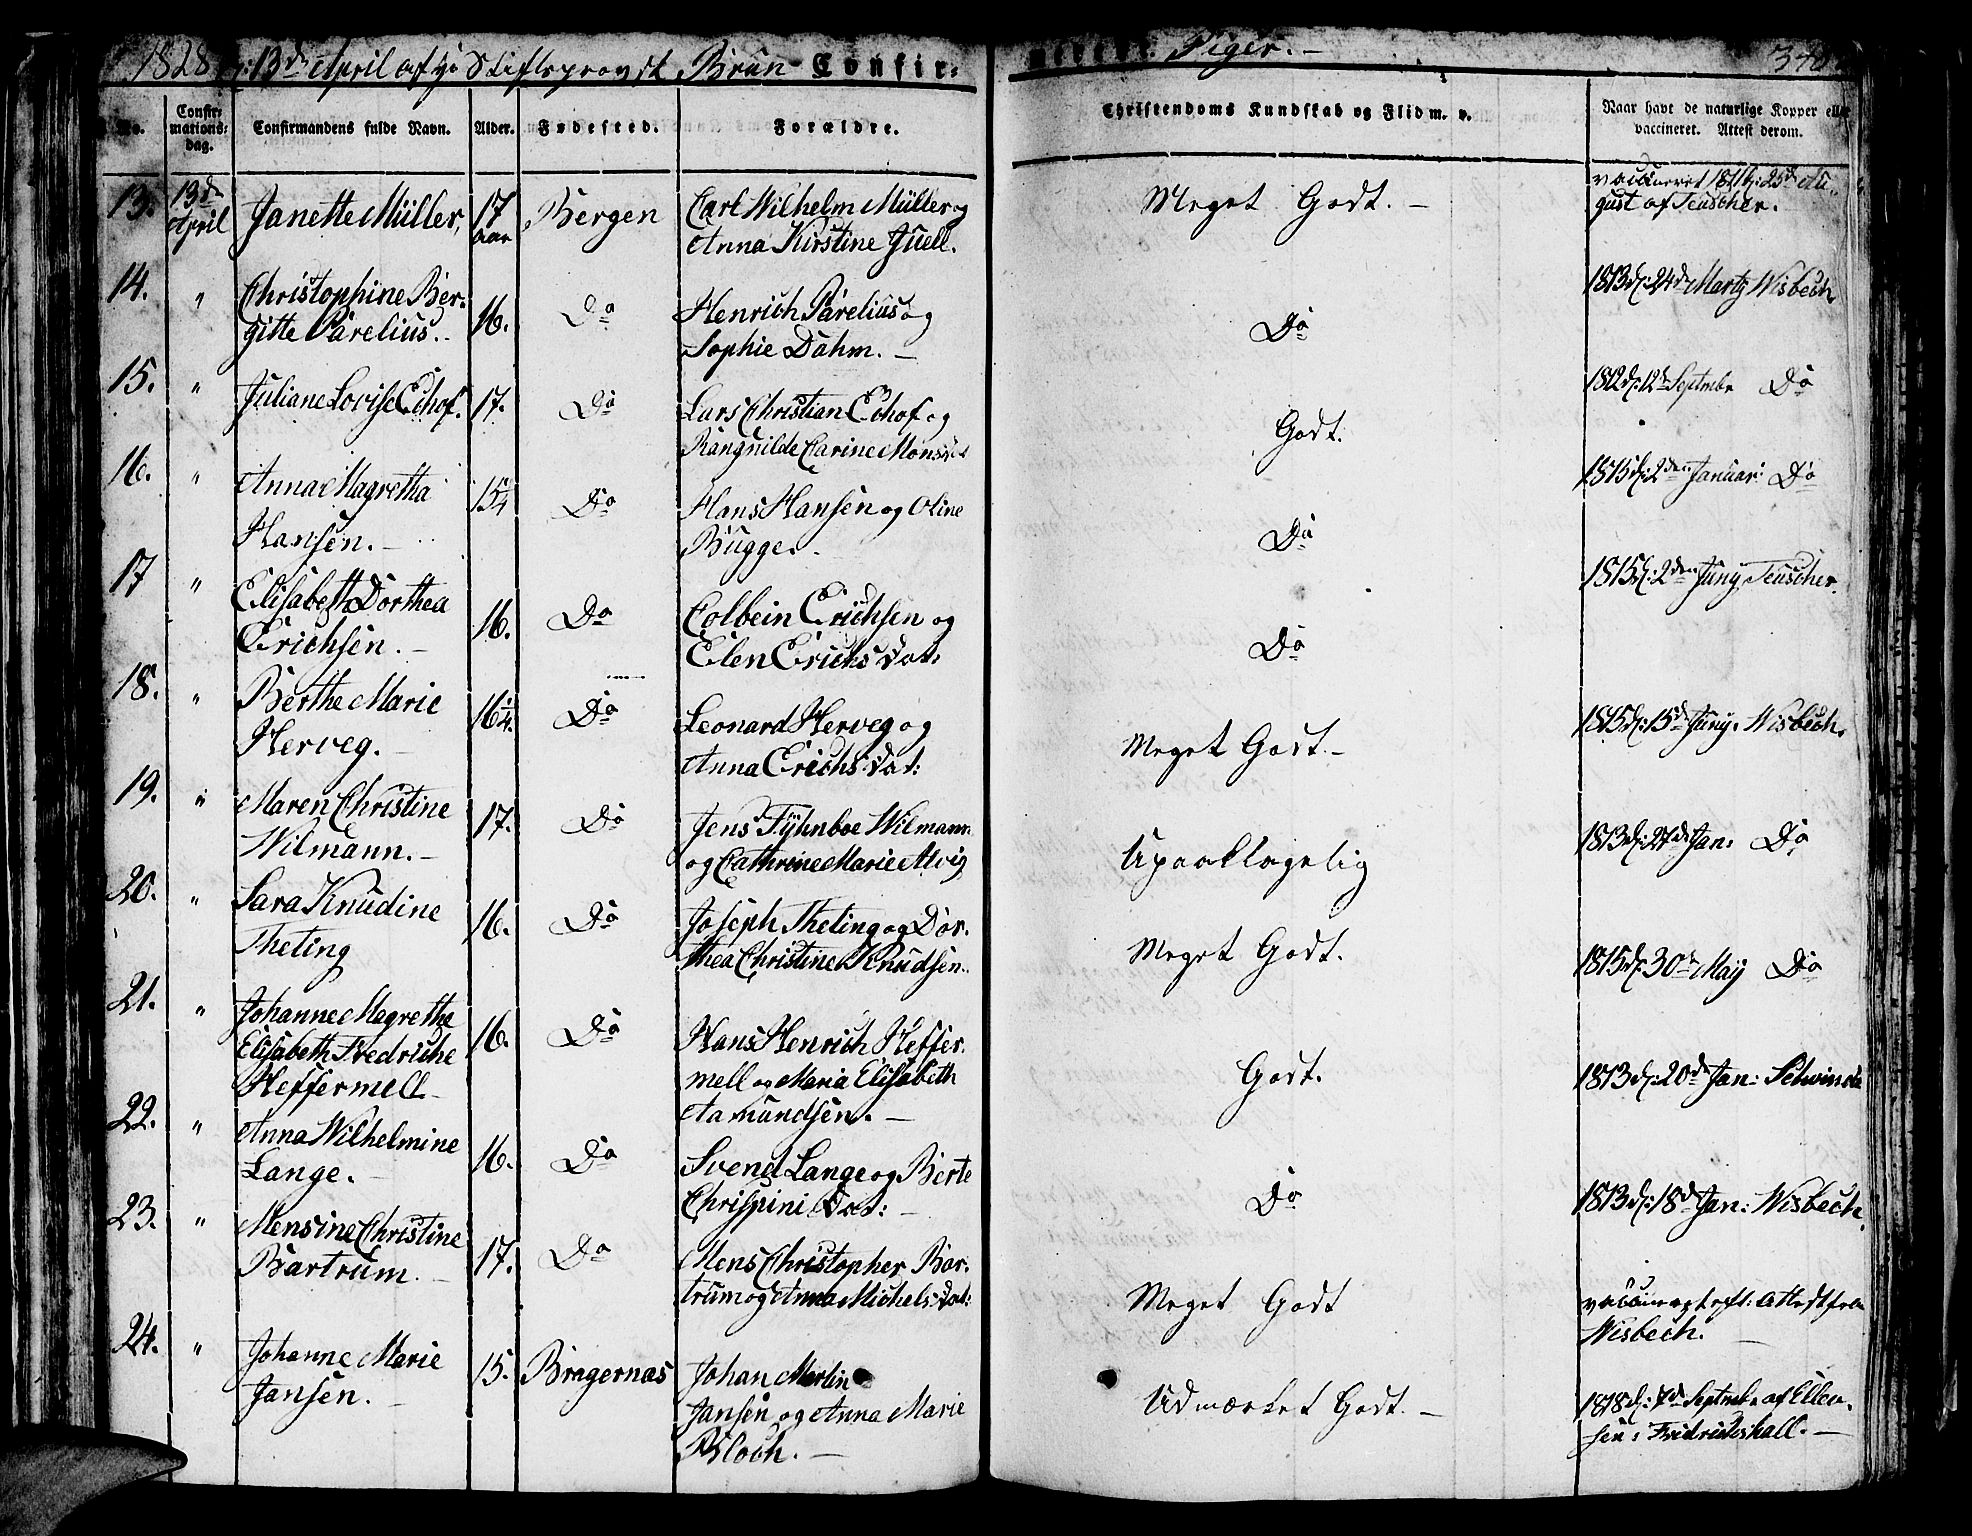 1828 d: 13de April af Hr Stiftsprovst Brun Confir-
merede Piger. -
No.
Confir-
mations-
dag.
Confirmandens fulde Navn.
Alder.
Fødested.
Forældre.
Christendoms Kundskab og Flid m. v.
Naar havt de naturlige Kopper eller
vaccineret. Attest derom.
13. 13de
April
Janette Müller,
17
aar
Bergen
Carl Wilhelm Müller og
Anna Kirstine Juell.
Meget Godt. -
vaccineret d: 25de Au-
gust af Teuscher.
14. "
Christophine Ber-
gitte Parelius. -
16.
Do
Henrich Parelius og
Sophie Dahm. -
Do
1813 d: 24de Marty Wisbech
15. "
Juliane Lovise Echof.
17.
Do
Lars Christian Echof og
Rangnilde Carine
Godt.
1812 d: 12te Septmbr Do
16. "
Anna Magretha
Hansen. -
15 1/4
Do
Hans Hansen og Oline
Bugge. -
Do
1815 d: 2den Januar: Do
17 "
Elisabeth Dorthea
Erichsen. -
16.
Do
Colbein Erichsen og
Elen Erichs Dat:
Do
1815 d: 2den Juny Teuscher.
18. "
Berthe Marie
Herveg. -
16 1/4.
Do
Leonard Herveg og
Anna Erichs Dat:
Meget Godt. -
1815 d: 15de Juny. Wisbech.
19. "
Maren Christine
Wilmann. -
17.
Do
Jens Fÿhnboe Wilmann
og Cathrine Marie Alvig
Upaaklagelig
1813 d: 27de Jan: Do
20. "
Sara Knudine
Theting
16.
Do
Joseph Theting og Dor-
thea Christine Knudsen.
Meget Godt.
1815 d: 30te Maÿ Do
21. "
Johanne Magrethe
Elisabeth Fredriche
Heffermell -
16.
Do
Hans Henrich Heffer-
mell og Maria Elisabeth
Aamundsen. -
Godt.
1813 d: 20de Jan:
22. "
Anna Wilhelmine
Lange. -
16.
Do
Svend Lange og Berte
Chrispini Dat: -
Do
1813 d: 18de Jan: Wisbech.
23. "
Mensine Christine
Bartrum. -
17.
Do
Mens Christopher Bar-
trum og Anna Michels Dat:
Meget Godt
vaccineret eft: Attest fra
Wisbech. -
24. "
Johanne Marie
Jansen. -
15.
Bragernæs
Johan Martin
Jansen og Anna Marie
Bloch. -
Udmærket Godt. -
1818 d: 7de Septmbr af Ellen-
sen: Fridrichshall. -